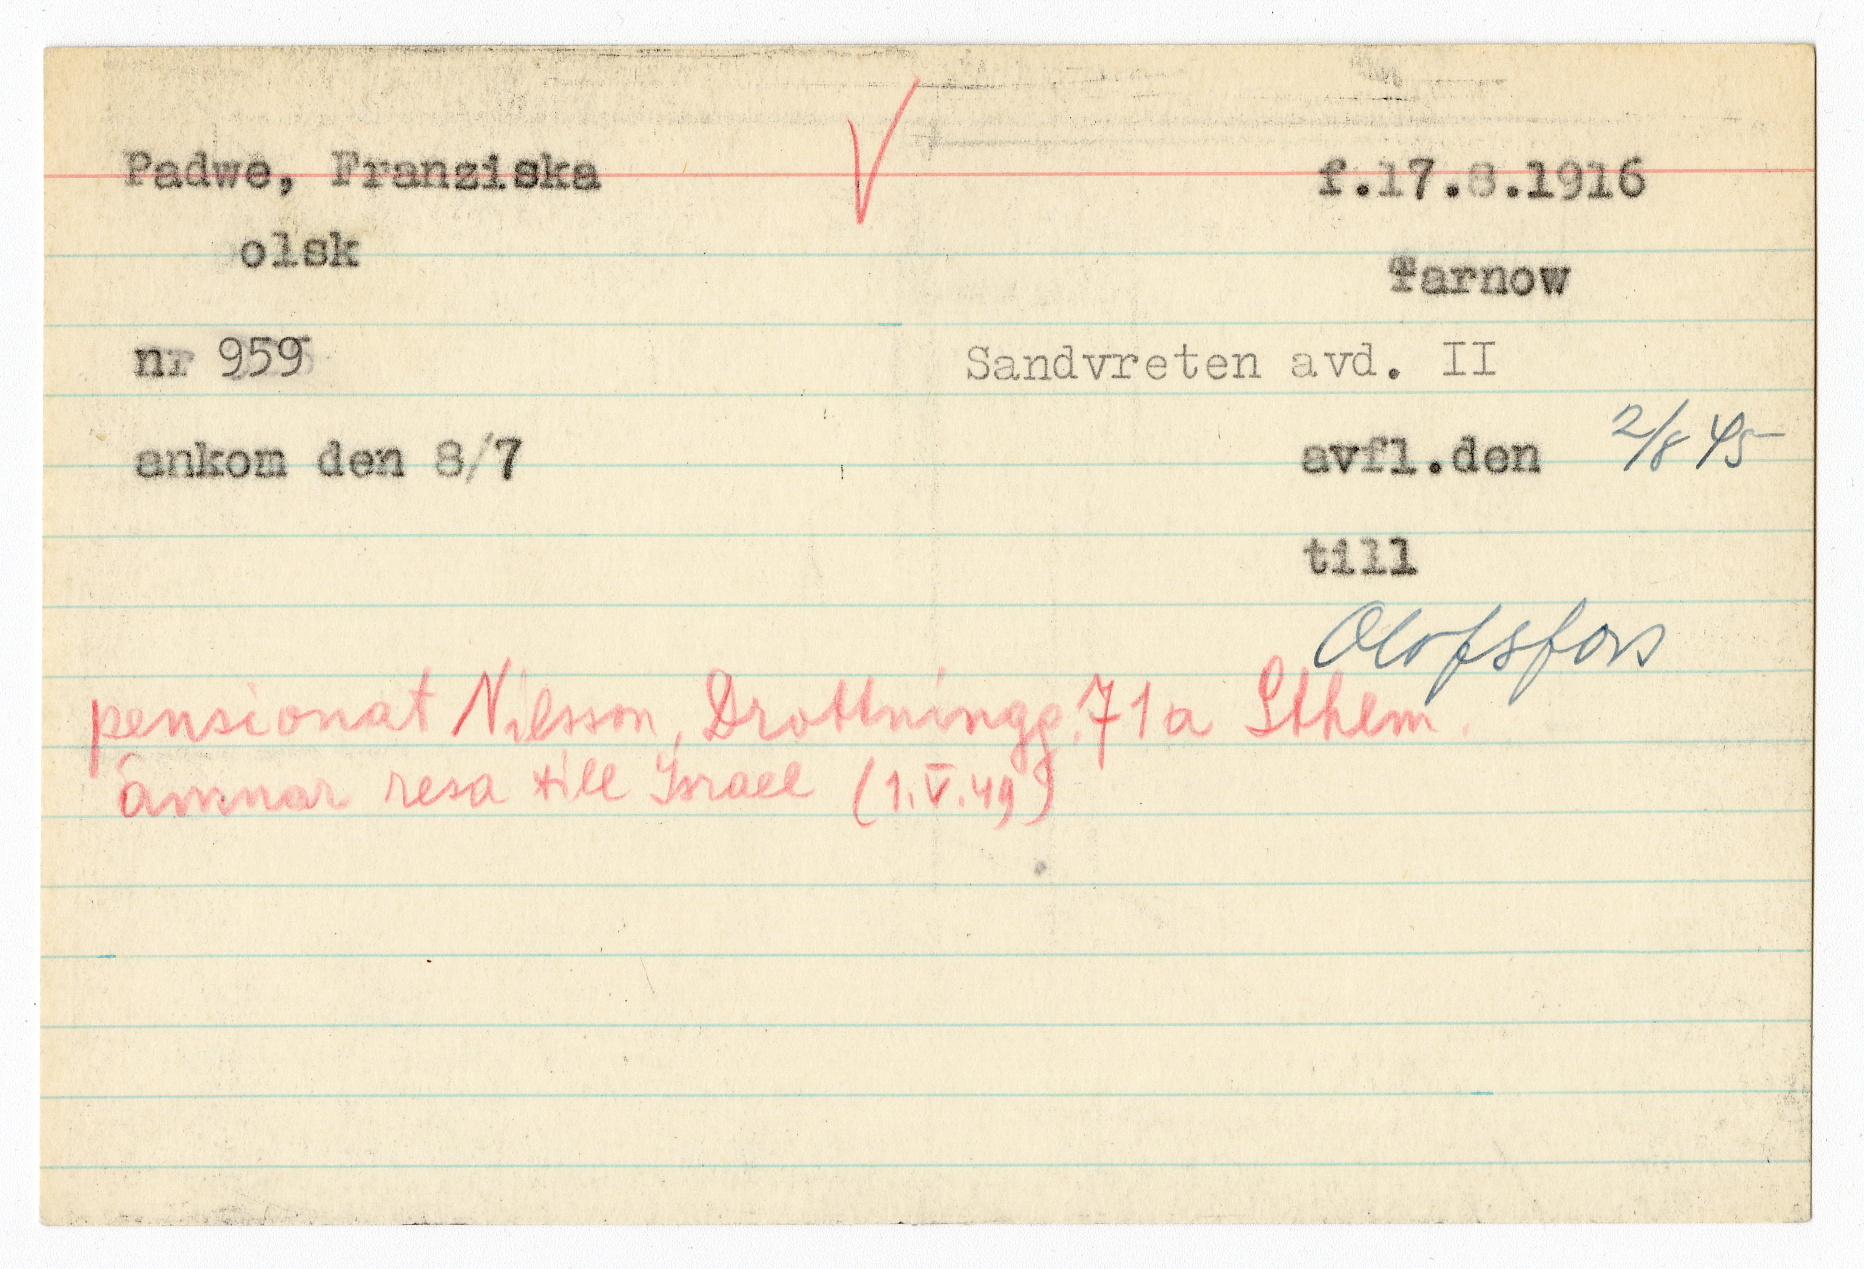 Padwe, Franziska f.17.8.1916
polsk Tarnow
nr 959 Sandvreten avd. II
ankom den 8/7 avfl.den 2/8 45
till
Olofsfors
pensionat Nilsson, Drottningg. 71a Sthlm.
ämnar resa till Israel (1.V.49)